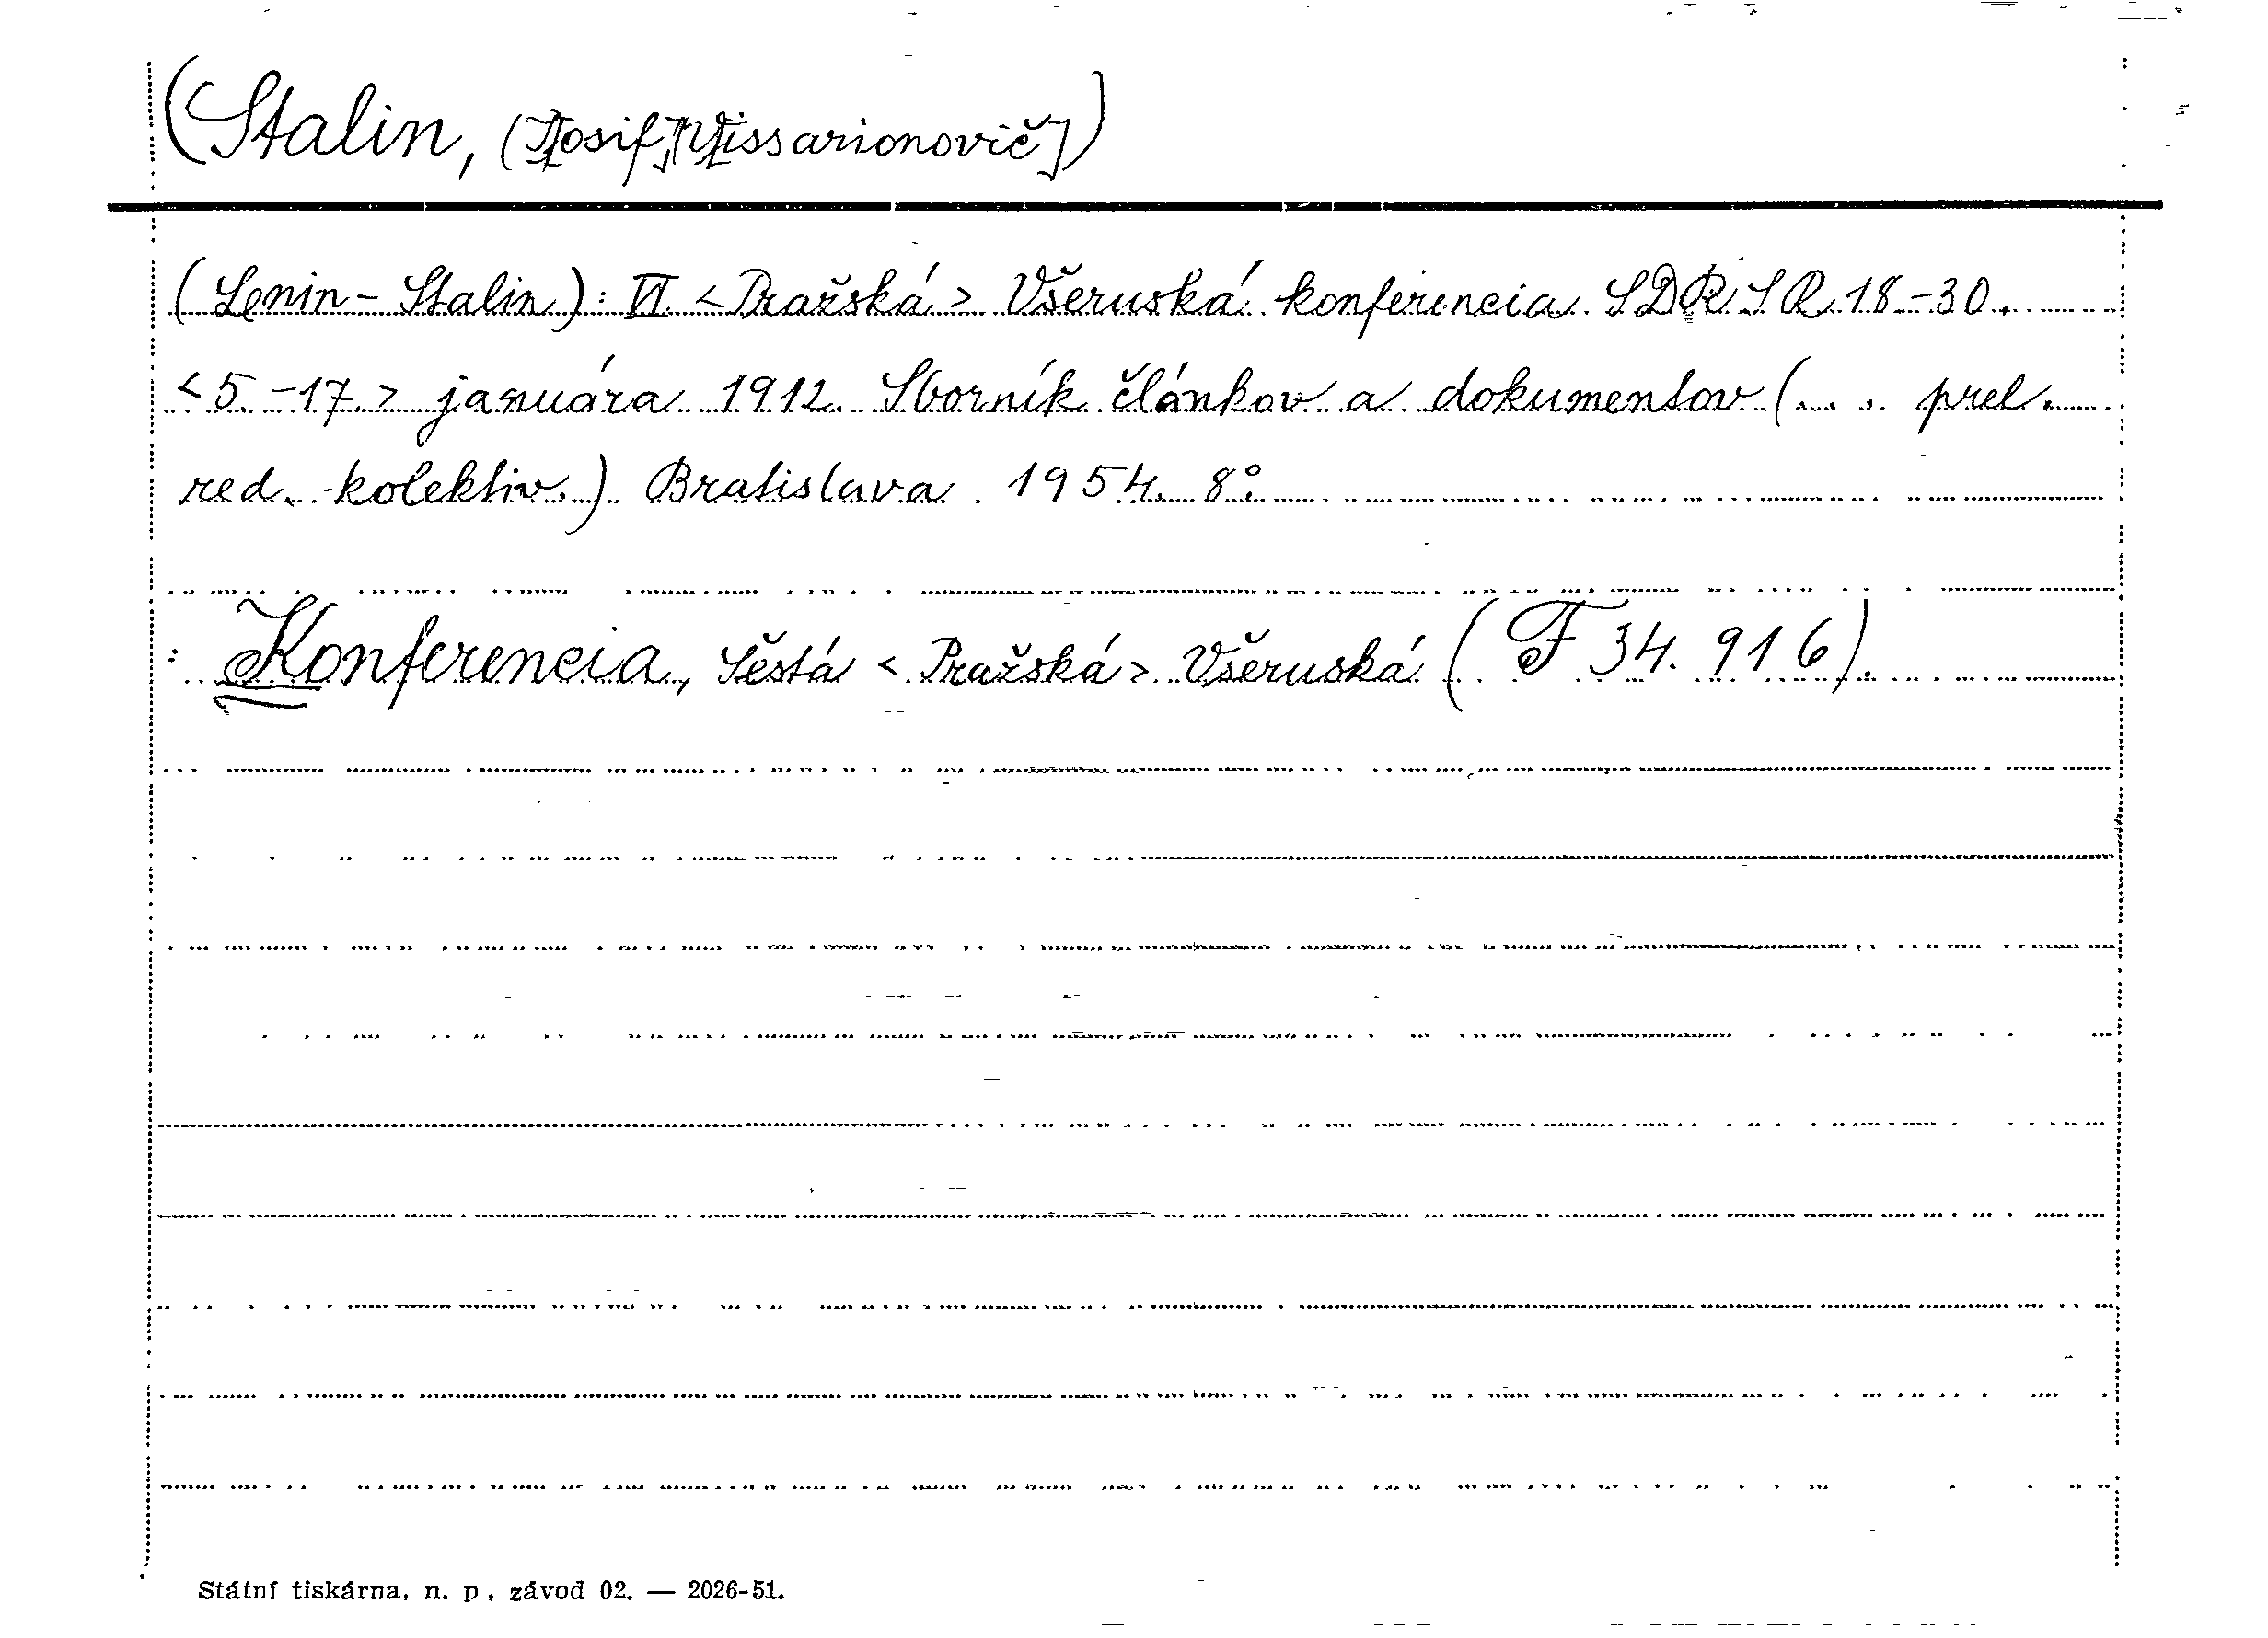 (Stalin, (J[osif] V[issarionovič])
(Lenin - Stalin): VI. <Pražská> Všeruská konferencia SDRSR 18-30.
<5-17> januára 1912. Sborník článkov a dokumentov (... prel.
red. kolektiv.) Bratislava 1954. 8°.
: Konferencia, šěstá <Pražská> Všeruská (F 34.916).
Státní tiskárna, n. p., závod 02. — 2026-51.